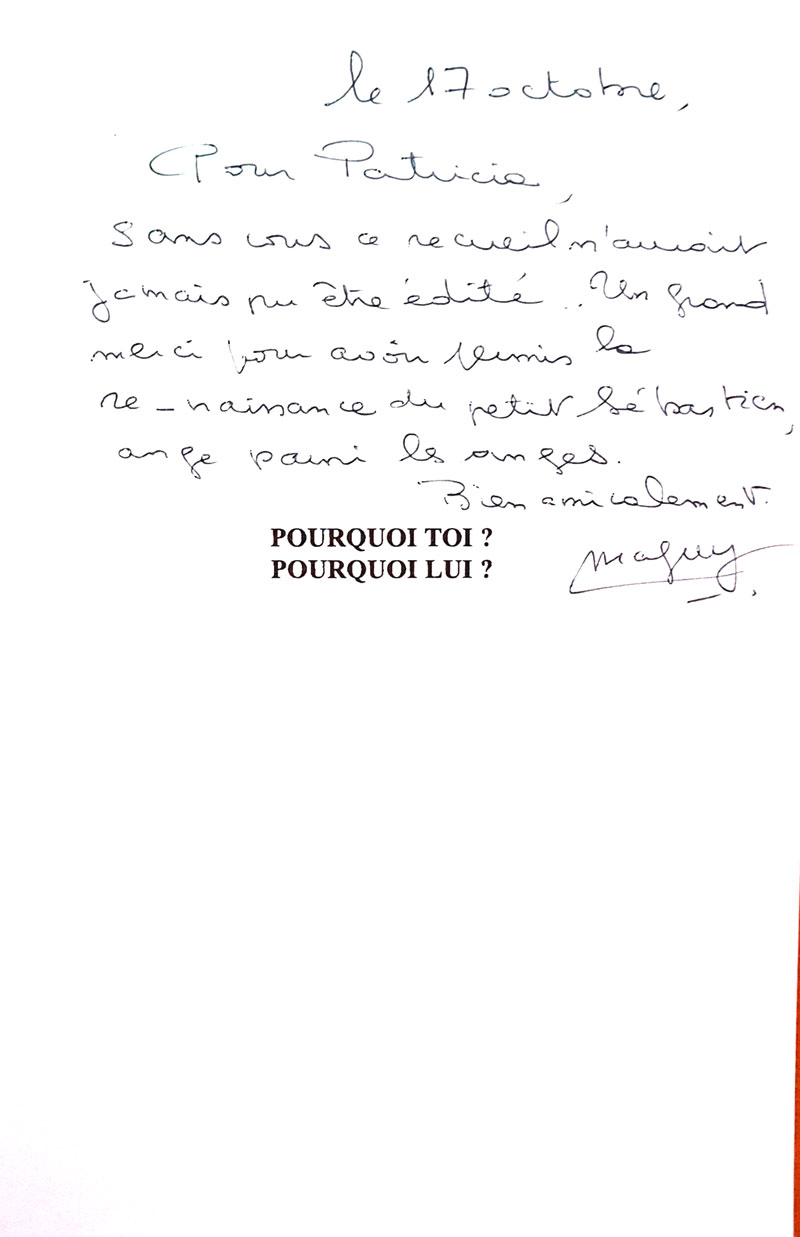 le 17 octobre,
Pour Patricia,
Sans vous ce recueil n'aurait
jamais pu être édité. Un grand
merci pour avoir permis la
re-naissance du petit Sébastien,
ange parmi les anges.
Bien amicalement.
POURQUOI TOI ?
POURQUOI LUI ?
Maguy